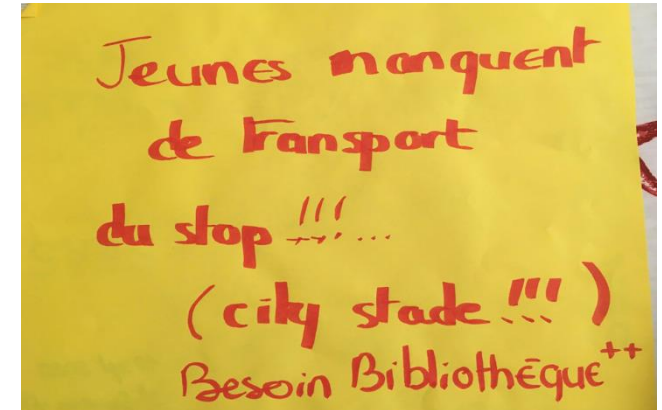 Jeunes manquent
de transport
du stop !!! ...
(city stade !!!)
Besoin Bibliothèque ++